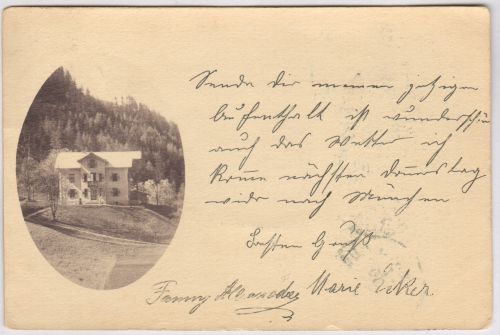 Sende dir meinen jetzigen
Aufenthalt ist wunderschön
auch das Wetter ich
komme nächsten Donnerstag
wieder nach München
Besten Gruß
Fanny Marie Eker